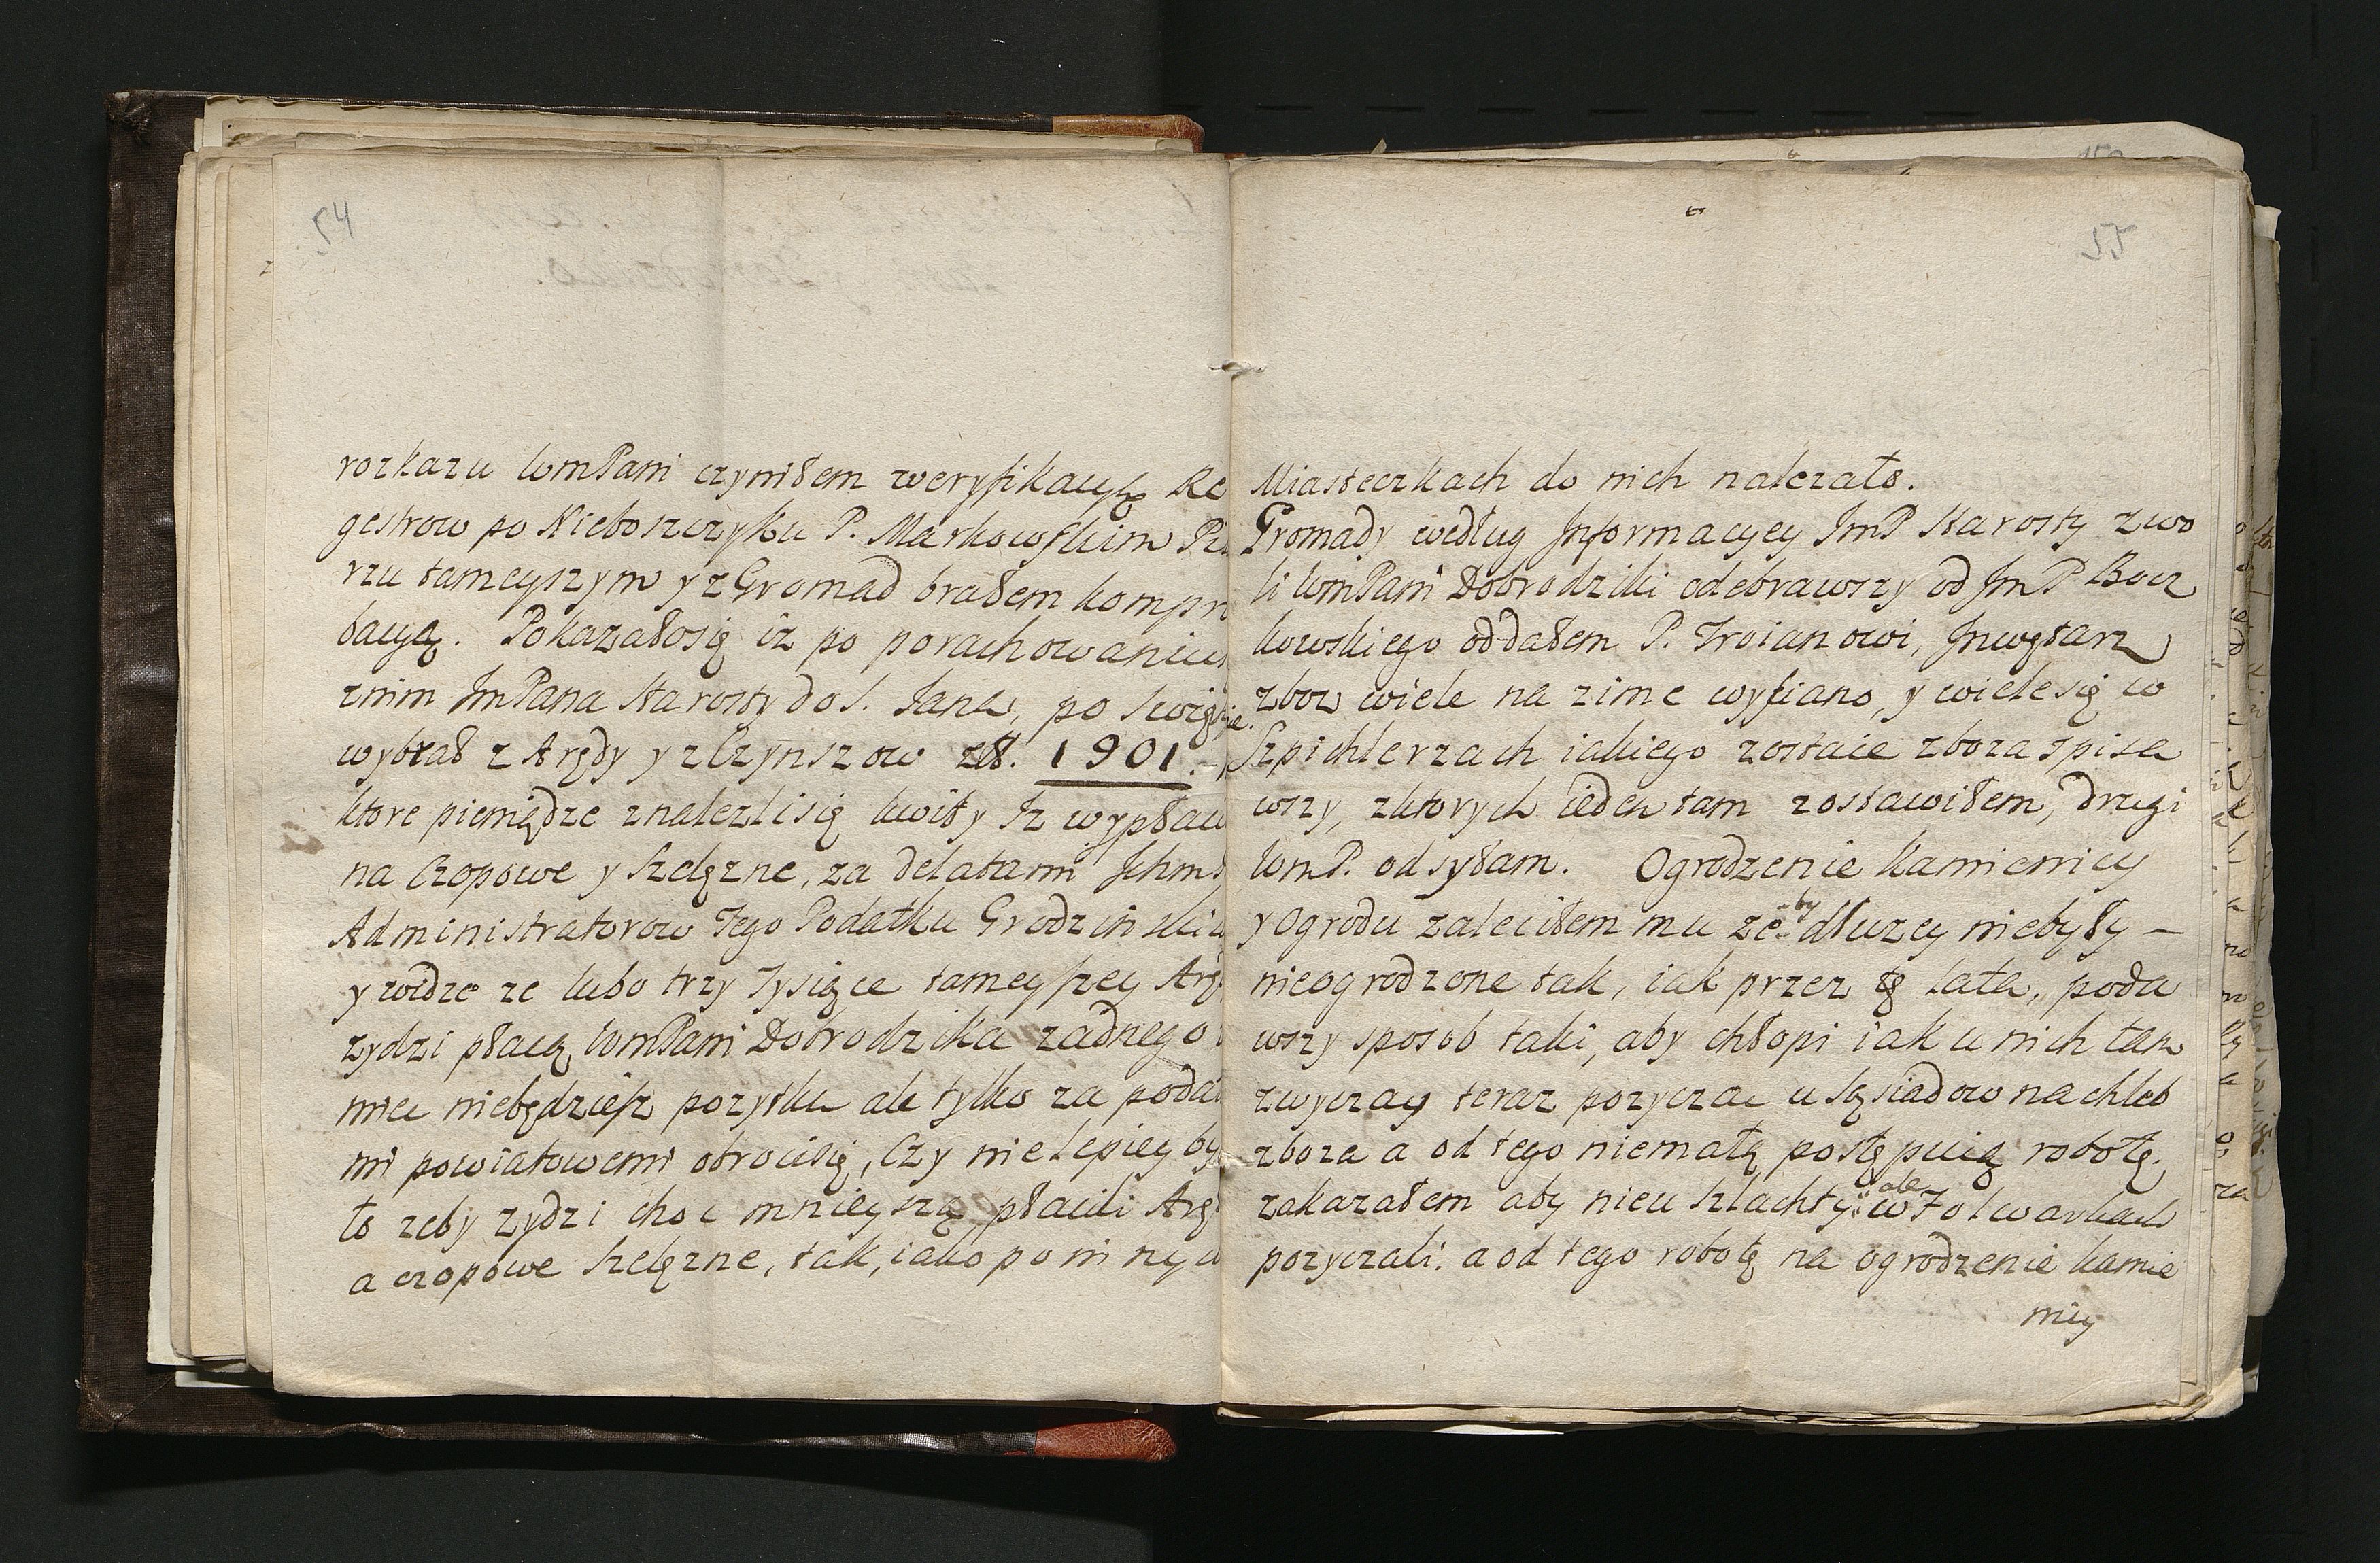 54
rozkazu WmPani czyniłem weryfikacyą Re
gestrow po Nieboszczyku P. Markowskim
rzu tameyszym y z Gromad brałem kompro
bacyą. Pokazałosię iz po porachowaniu
znim ImPana Starosty do S. Jana, po
wybrał z Arędy y z Czynszow zł. 1901.
ktore pieniądze znalezlisię kwity Iz
na Czopowe y Szelęzne, za delatami
Administratorow Tego Podatku
y widze ze lubo trzy Tysiące tameyszey
zydzi płacą WmPani Dobrodzika zadnego
mieć niebędziesz pozytku ale tylko za
mi powiatowemi obrocisię, Czy nie lepiey
to zeby zydzi choc mnieyszą płacili
a czopowe szelęzne, tak, iako
55
Miasteczkach do nich nalezało.
Gromady według Informacyey ImP Starosty z wo
li WmPani Dobrodziki odebrawszy od ImP Bocz
kowskiego oddałem P. Troianowi, Inwętarz
zboz wiele na zime wysiano, y wiele się w
Szpichlerzach iakiego zostaie zboza spisa
wszy, zktorych ieden tam zostawiłem, drugi
WmP. odsyłam. Ogrodzenie Kamienicy
y Ogrodu zaleciłem mu zeby dłuzey niebyły –
nieogrodzone tak, iak przez tę lata, poda
wszy sposob taki, aby chłopi iak u nich tam
zwyczay teraz pozyczac u Sąsiadow na chleb
zboza a od tego niemałą postępuią robotę.
zakazałem aby nieu Szlachty ale w Folwarkach
pozyczali. a od tego robotę na ogrodzenie kamie
nicy